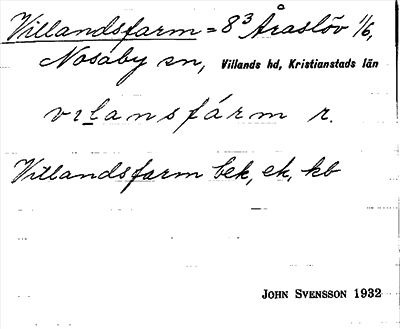 Villandsfarm = 8³ Åraslöv 1/6,
Nosaby sn, Villands hd, Kristianstads län
vılansfárm r.
Villandsfarm bek, ek, kb
JOHN SVENSSON 1932